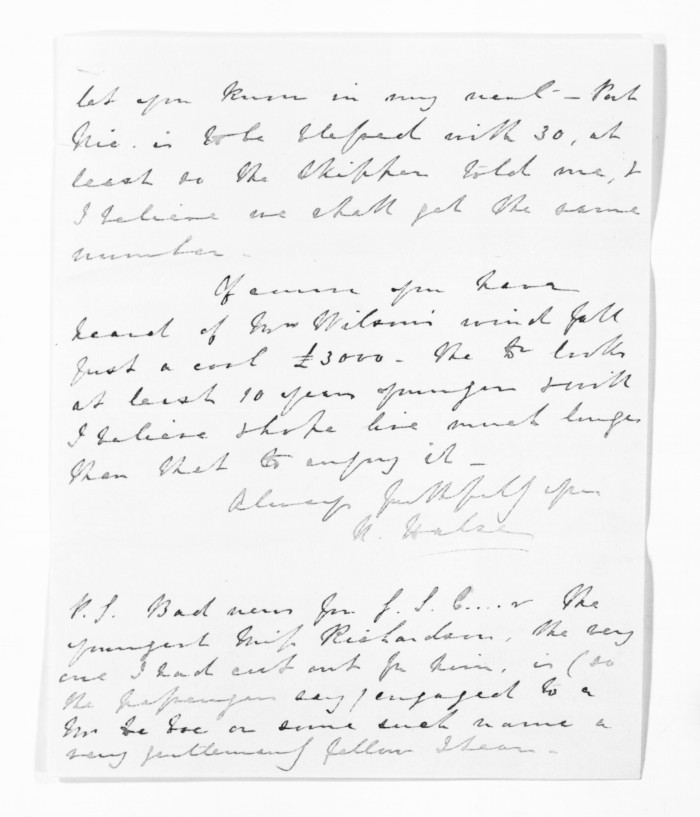 let you know in my next – Port
Nic. is to be blessed with 30, at
least so the skipper told me, &
I believe we shall get the same
number.
Of course you have
heard of Mrs Wilson's wind fall
Just a cool £3000 – the Dr looks
at least 10 years younger & will
I believe & hope live much longer
than that to enjoy it –
Always faithfully yrs
H. Halse
P.S. Bad news for J. S. C....r The
youngest Miss Richardson, the very
one I had cut out for him, is (so
the passengers say) engaged to a
Mr De Voe or some such name a
very gentlemanly fellow I hear –